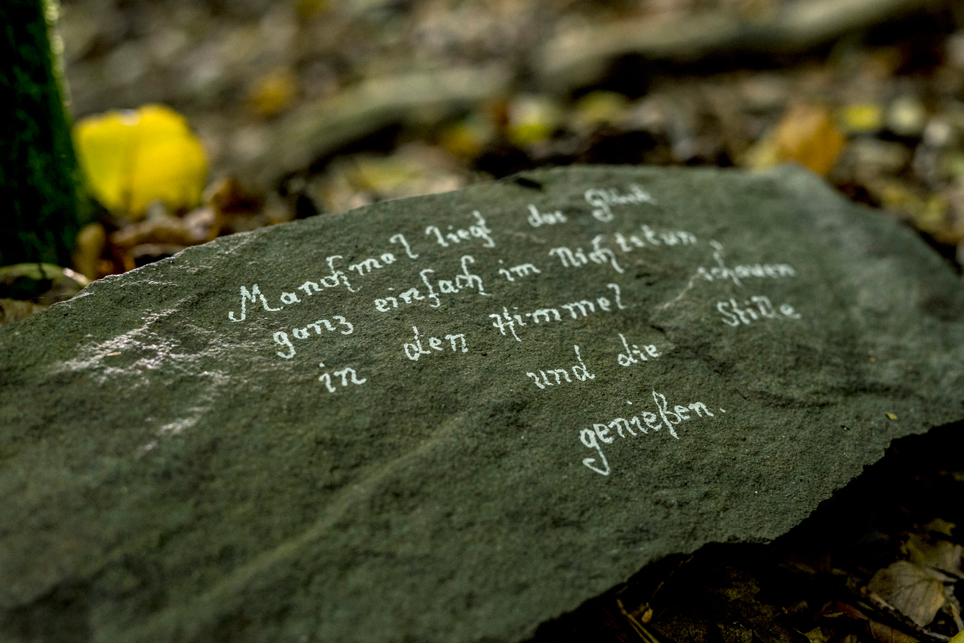 Manchmal liegt das Glück
ganz einfach im Nichtstun,
in den Himmel schauen
und die Stille
genießen.